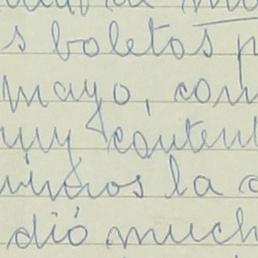 s boletos p
mayo, con
uy content
vimos la c
dió much